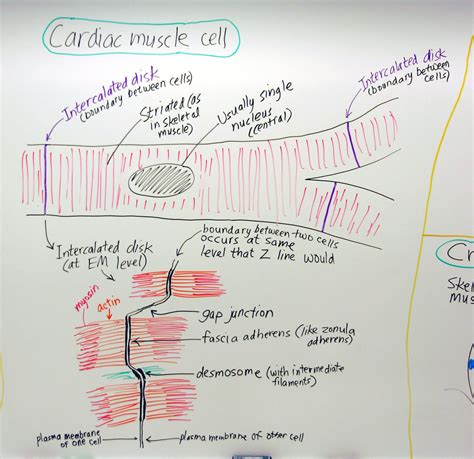 Cardiac muscle cell
Intercalated disk
(boundary between cells)
Striated (as
in skeletal
muscle)
Usually single
nucleus
(central)
Intercalated disk
(boundary between
cells)
Intercalated disk
(at EM level)
boundary between two cells
occurs at same
level that Z line would
myosin
actin
gap junction
fascia adherens (like zonula
adherens)
desmosome (with intermediate
filaments)
plasma membrane
of one cell
plasma membrane of other cell
Cr
Skel
Mus